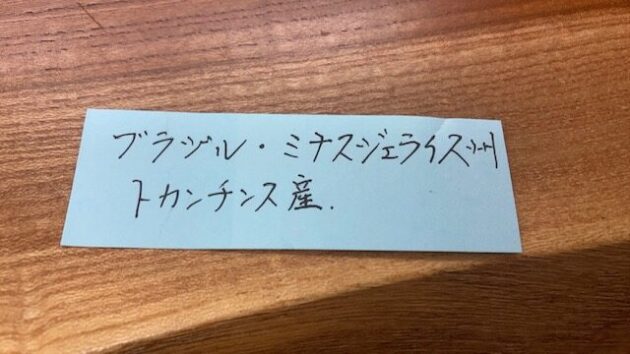 ブラジル・ミナスジェライス州
トカンチンス産.